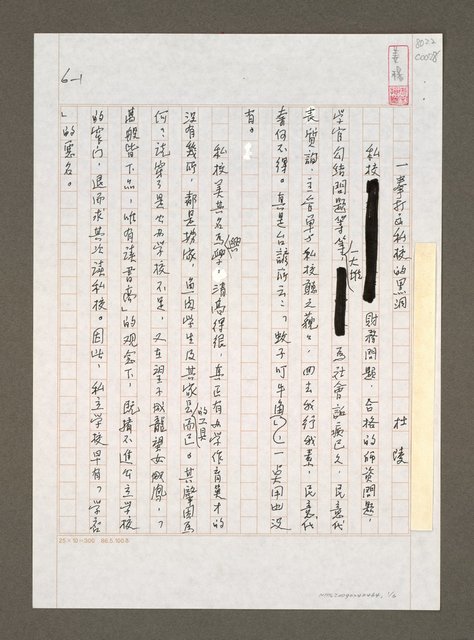 6-1
8022
C0078
姜穆
一拳打死私校的黑洞
杜陵
私校財務問題,合格的師資問題,
學官勾結問題等等,一大堆為社會詬病已久,民意代
表質詢,主管單與私校聽之藐藐,回去我行我素,民意代
奈何不得。真是台諺所云:「蚊子叮牛角」,一點用也沒
有。
私校美其名為興學。清高得很,真正有心學作育英才的
沒有幾所,都是撈家,魚肉學生及其家長的工具而已。其肇因為
何?說穿了是公立學校不足,又在望子成龍望女成鳳,「
萬般皆下品,唯有讀書高」的观念下,既擠不進公立學校
的窄门,退而求其次讀私校。因此,私立學校早有「學店
」的惡名。
25×10=300 86.5.100本
NMTL20090240464, 1/6